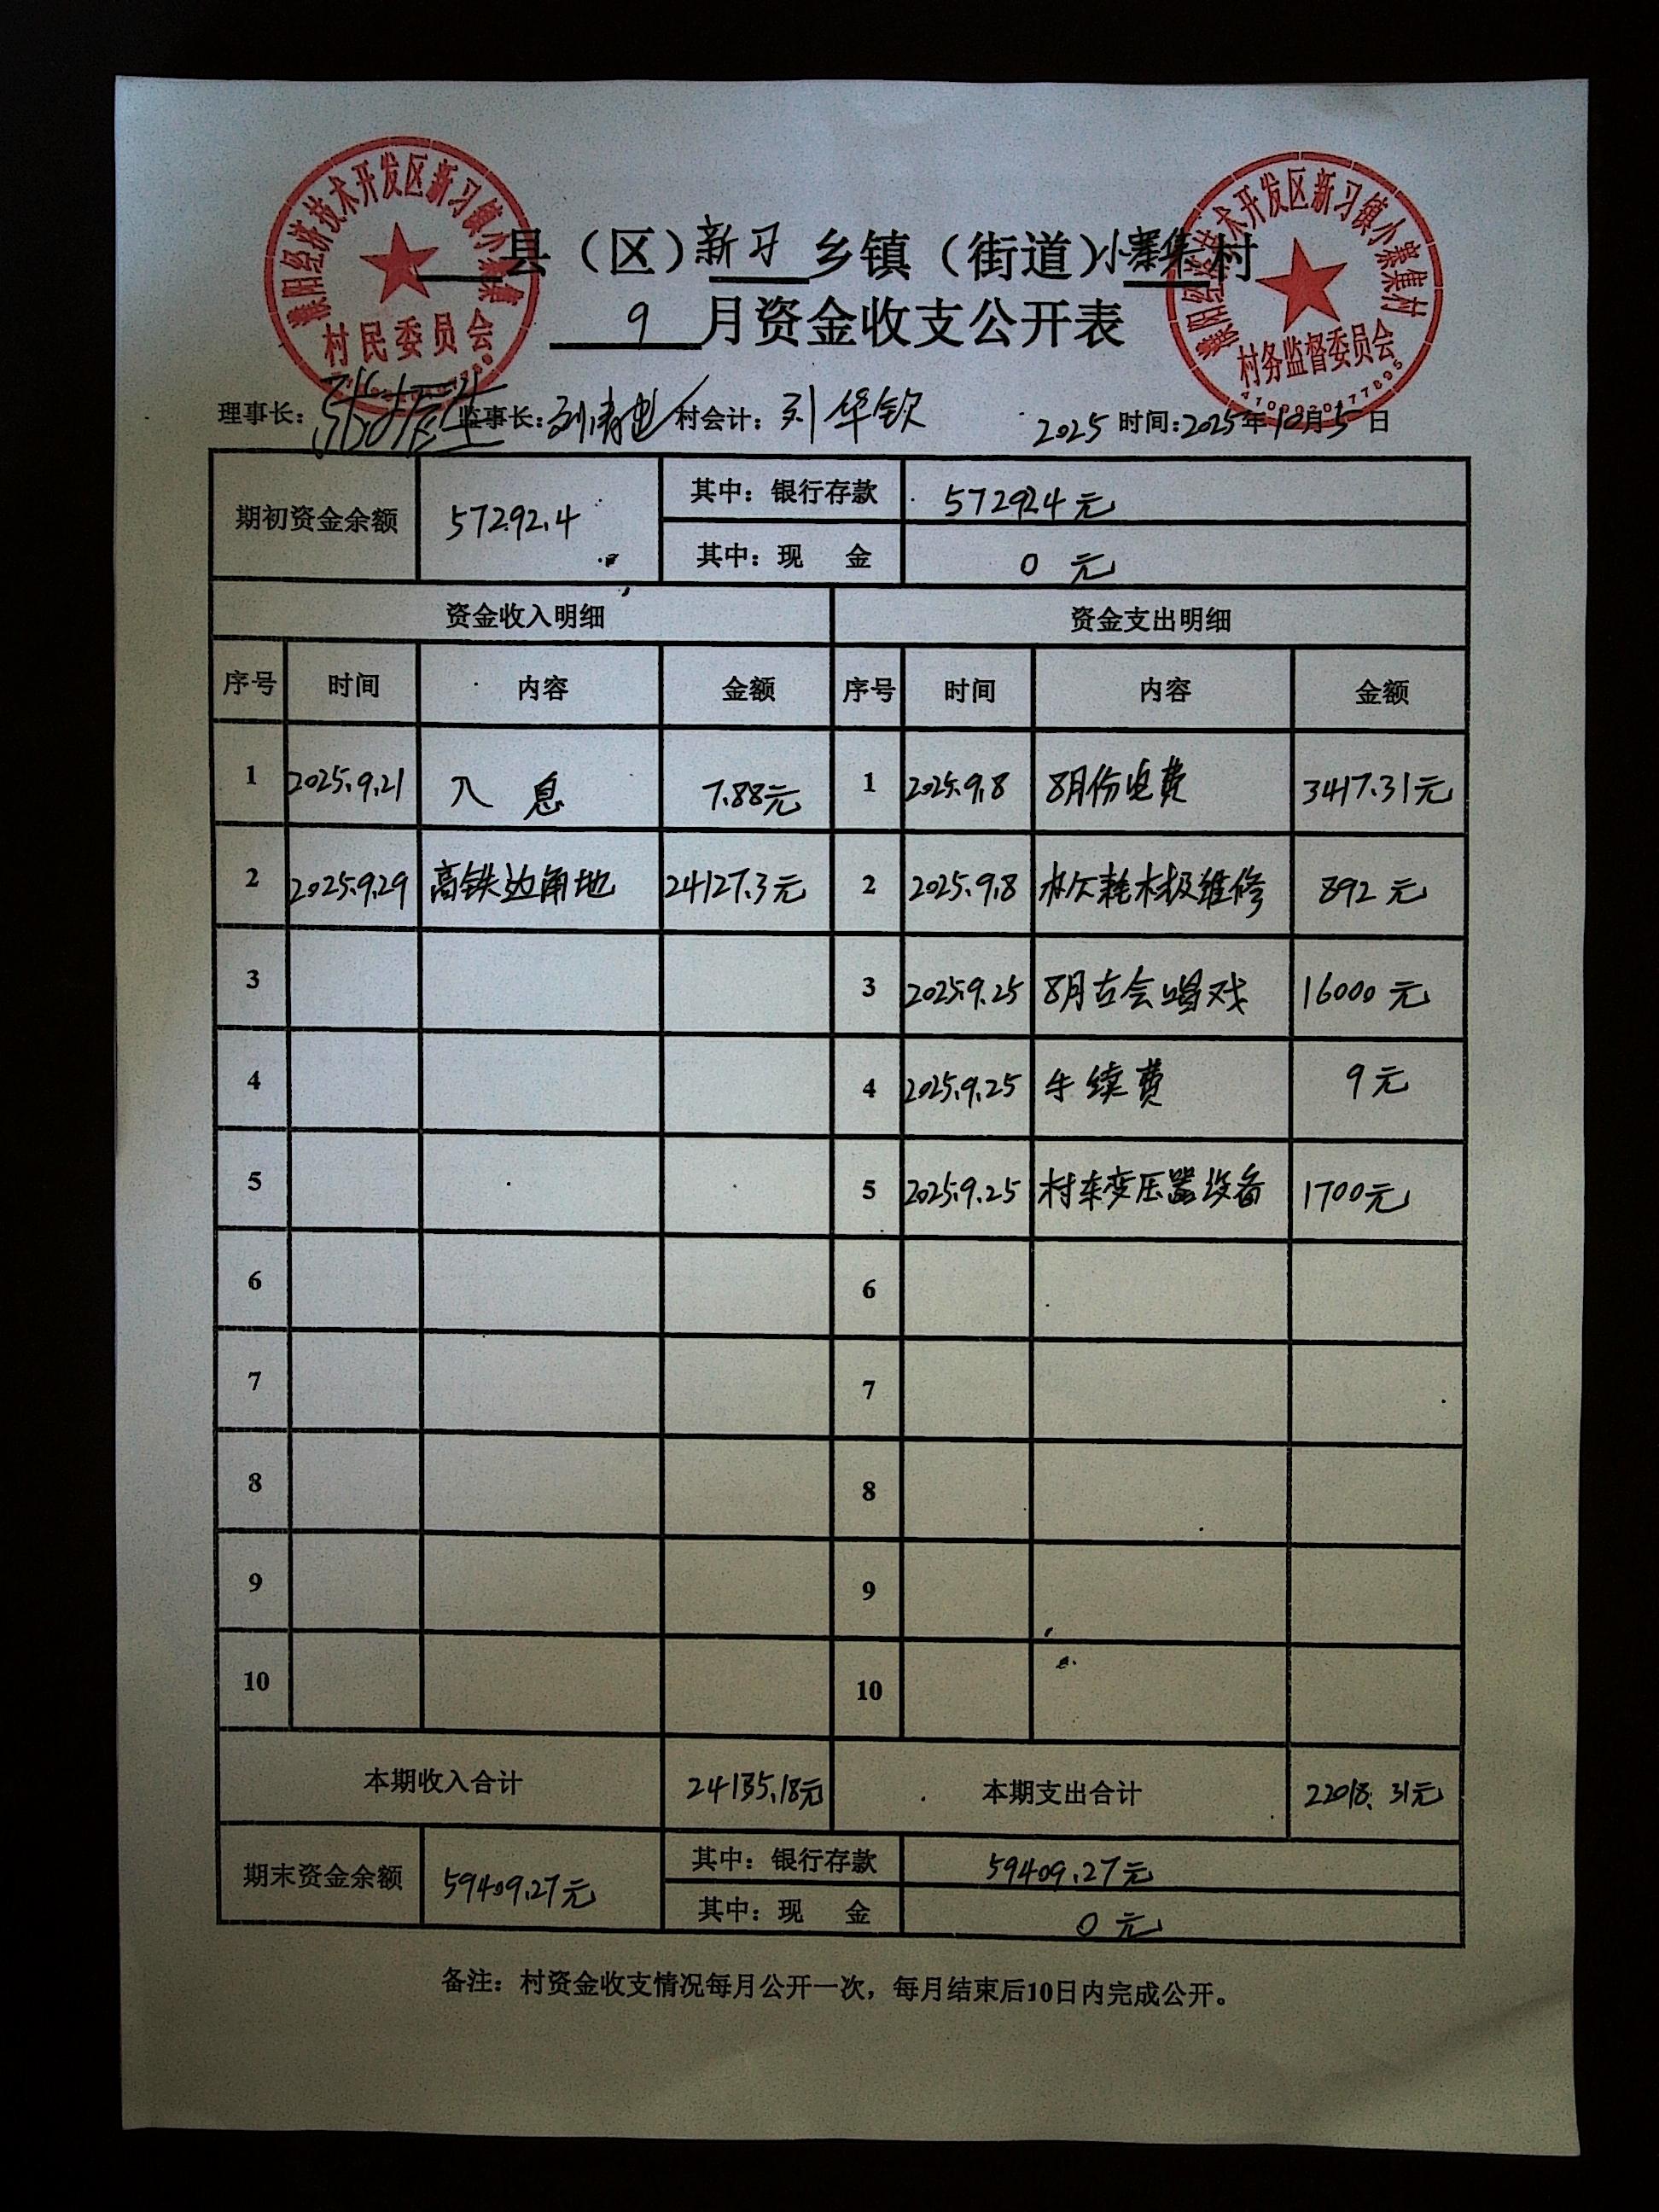 濮阳经济技术开发区新习镇小寨集
村民委员会
术开发区新习镇小寨集村
村务监督委员会
县（区）新习 乡镇（街道）小寨集村
9 月资金收支公开表
理事长： 监事长： 村会计：刘华钦 2025 时间：2025年10月5日
期初资金余额 57292.4 其中：银行存款 57292.4元
其中：现 金 0 元
资金收入明细 资金支出明细
序号 时间 内容 金额 序号 时间 内容 金额
1 2025.9.21 入 息 7.88元 1 2025.9.8 8月份电费 3417.31元
2 2025.9.29 高铁边角地 24127.3元 2 2025.9.8 维修 892元
3 3 2025.9.25 8月古会唱戏 16000元
4 4 2025.9.25 手续费 9元
5 5 2025.9.25 村东变压器设备 1700元
6 6
7 7
8 8
9 9
10 10
本期收入合计 24135.18元 本期支出合计 22018.31元
期末资金余额 59409.27元 其中：银行存款 59409.27元
其中：现 金 0元
备注：村资金收支情况每月公开一次，每月结束后10日内完成公开。